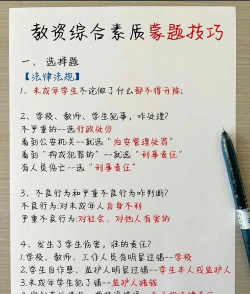 教资综合素质蒙题技巧
一、选择题
【法律法规】
1、未成年学生不论做了什么都不得开除;
2、学校、教师、学生犯事，咋处理?
不严重的--选行政处分
看到公安机关--就选"治安管理处罚"
看到"构成犯罪的"--就选"刑事责任"
有人员伤亡--选"刑事责任"
3、不良行为和严重不良行为咋判断?
不良行为:对未成年人自身不利
严重不良行为:对社会、对他人有害的
4、发生了学生伤害，谁的责任?
1.学校、教师、工作人员有明显过错--学校
2.学生自作恶、监护人明显过错--学生本人或监护人
3.未成年学生犯了错--监护人赔偿